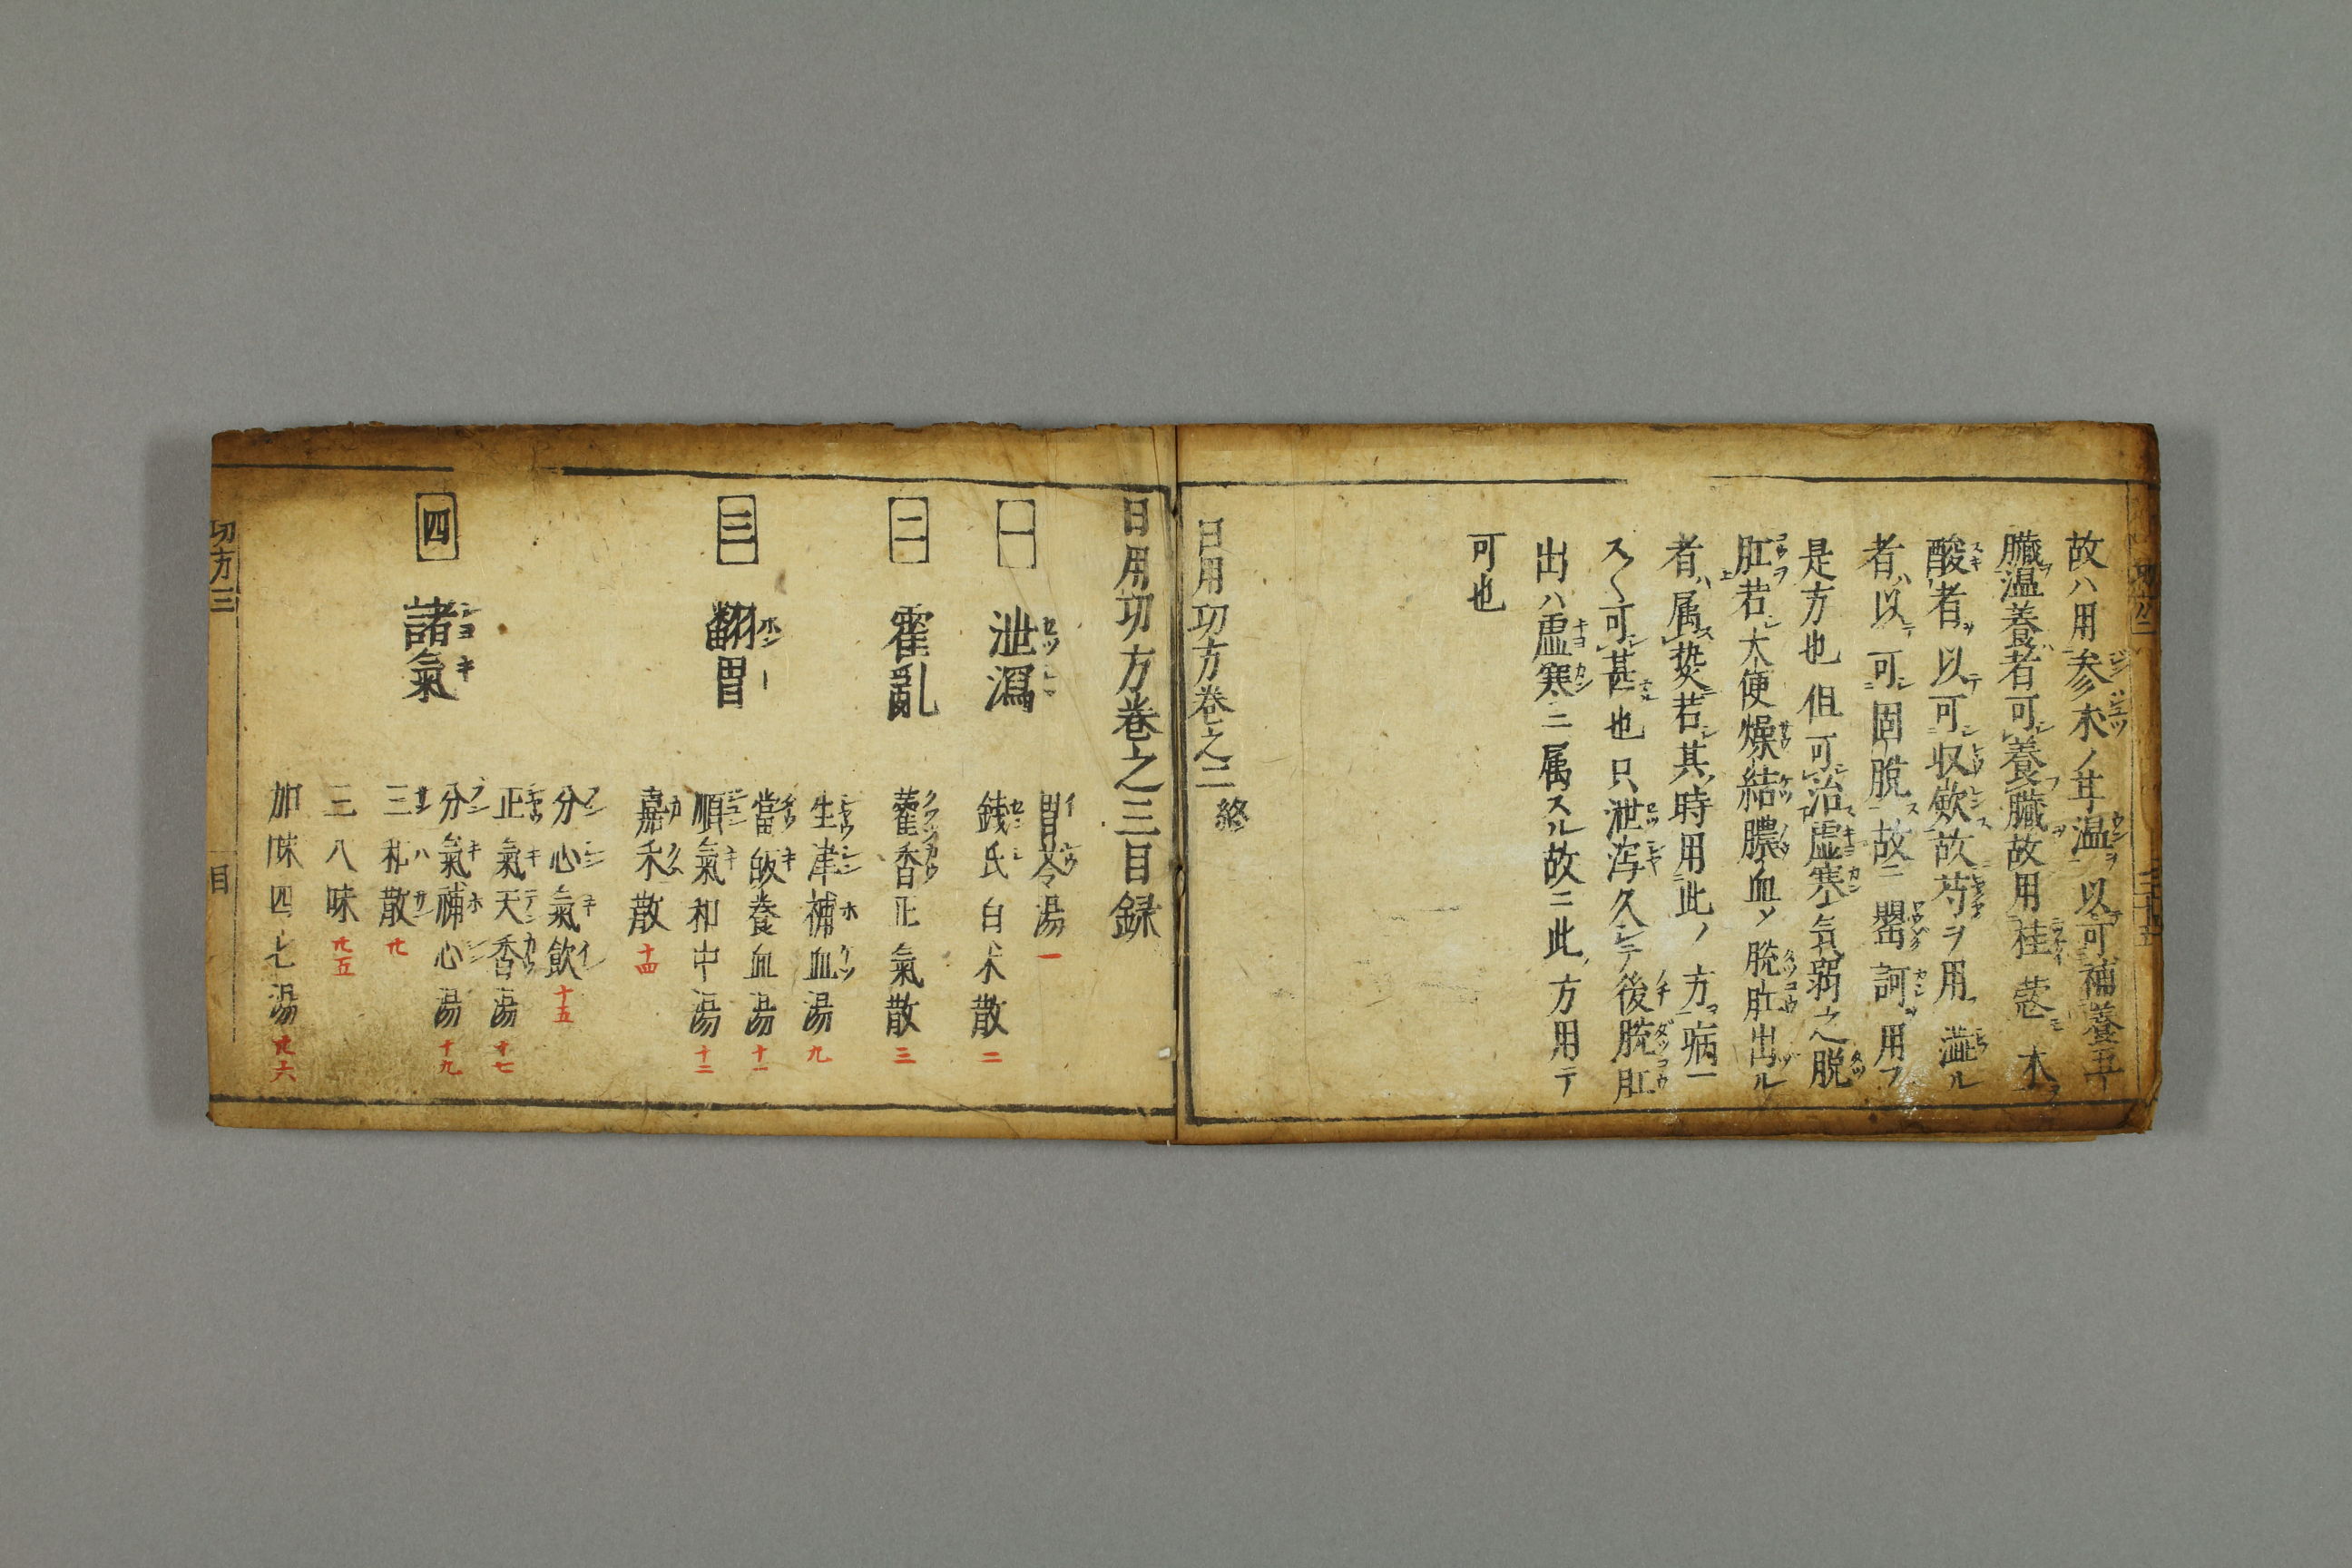 故ハ用参朮ノ甘温以可補養五
臓温養者可養臓故用桂苡木
酸者以可収歛故芍ヲ用澁ル
者ハ以可固脱故ニ罌訶用フ
是方也但可治虚寒氣弱之脱
肛若大便燥結膿血ソ脱肛出ル
者ハ属㷊若其時用此ノ方病
ス可甚也只泄瀉久シテ後脱肛
出ハ虚寒ニ属スル故ニ此方用テ
可也
日用功方巻之二終
日用切方巻之三目録
一 泄瀉
胃苓湯 一
銭氏白朮散 二
二 霍亂
藿香正氣散 三
三 翻胃
生津補血湯 九
當皈養血湯 十一
順氣和中湯 十二
嘉禾散 十四
四 諸氣
分心氣飲 十五
正氣天香湯 十七
分氣補心湯 十九
三和散 廿
三八味 廿五
加味四七湯 廿六
切方三 目